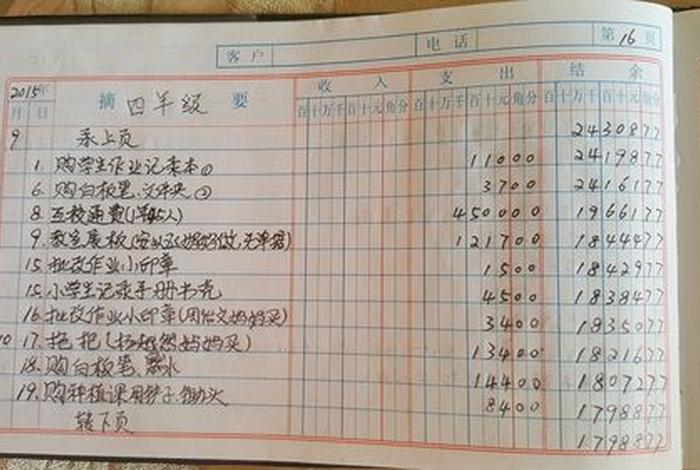 客户 电话 第16页
2015年 摘 四年级 要 收入 支出 结余
月 日 百十万千百十元角分 百十万千百十元角分 百十万千百十元角分
9 承上页 2430877
1. 购学生作业记录本① 11000 2419877
6. 购白板笔、文件夹② 3700 2416177
8. 通费 450000 1966177
9. 教室展板(妈妈做,无单据) 121700 1844477
15. 批改作业小印章 1500 1842977
15. 小学生记录手册书壳 4500 1838477
16. 批改作业小印章(周怡文妈妈买) 3400 1835077
10 17. 拖把(杨超然妈妈买) 13400 1821677
18. 购白板笔、墨水 14400 1807277
19. 购种植课用铲子、锄头 8400 1798877
转下页 1798877